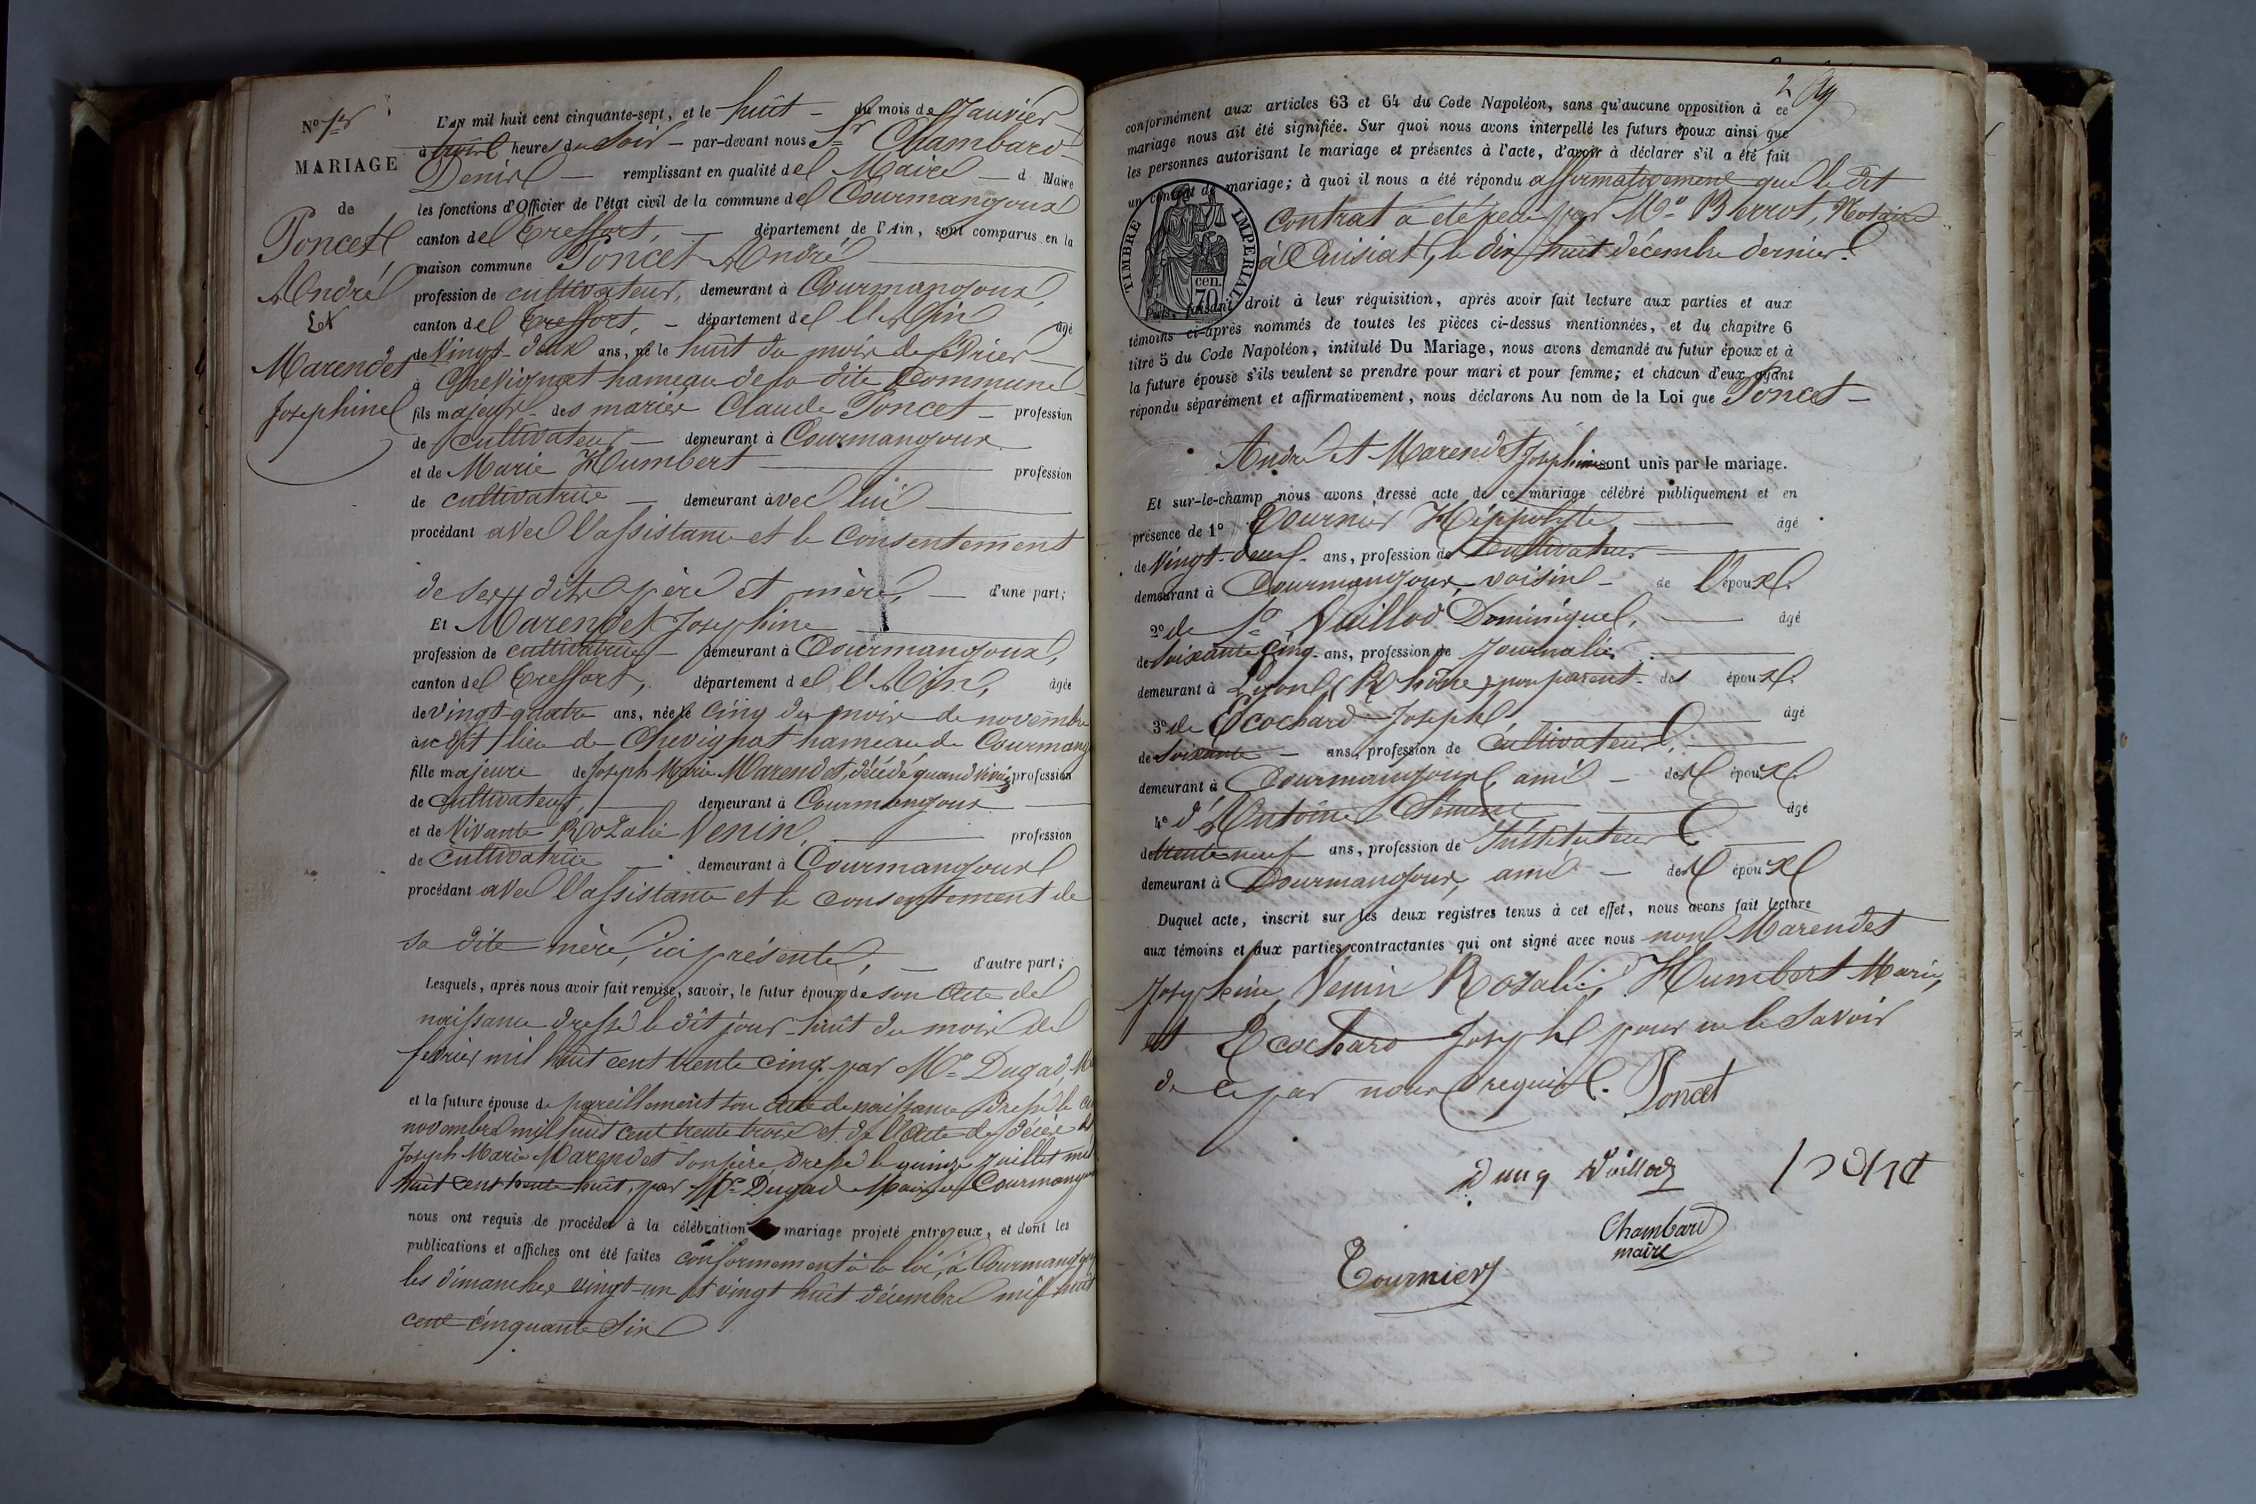 No 1er
MARIAGE
de
Poncet
André
Et
Marendet
Joséphine
L'AN mil huit cent cinquante-sept, et le huit du mois de Janvier
à heures du Soir par-devant nous Sr Chambard
Denis remplissant en qualité de Maire d Maire
les fonctions d'Officier de l'état civil de la commune de Courmangoux
canton de Treffort, département de l'Ain, sont comparus en la
maison commune Poncet André
profession de cultivateur, demeurant à Courmangoux,
canton de Treffort, département de l'Ain âgé
de Vingt-deux ans, né le huit du mois de février
à Chevignat hameau de la dite Commune
fils majeur des mariés Claude Poncet profession
de cultivateur demeurant à Courmangoux
et de Marie Humbert profession
de cultivatrice demeurant avec lui
procédant avec l'assistance et le consentement
de ses dits père et mère, d'une part;
Et Marendet Joséphine
profession de cultivatrice demeurant à Courmangoux,
canton de Treffort, département de l'Ain, âgée
de vingt-quatre ans, née le cinq du mois de novembre
au dit lieu de Chevignat hameau de Courmang
fille majeure de Joseph Marie Marendet, décédé quand vivait profession
de cultivateur, demeurant à Courmangoux
et de Vivante Rozalie Venin, profession
de cultivatrice demeurant à Courmangoux
procédant avec l'assistance et le consentement de
sa dite mère, ici présente, d'autre part;
Lesquels, après nous avoir fait remise, savoir, le futur époux de son acte de
naissance dressé le dit jour huit du mois de
février mil huit cent trente cinq par Mr Dugad,
et la future épouse de pareillement son acte de naissance dressé le
novembre mil huit cent trente trois et de l'acte de décès de
Joseph Marie Marendet son père dressé le quinze juillet mil
huit cent trente huit, par Mr Dugad Maire de Courmangoux
nous ont requis de procéder à la célébration mariage projeté entre eux, et dont les
publications et affiches ont été faites conformément à la loi, à Courmangoux
les dimanches vingt-un et vingt huit décembre mil huit
cent cinquante six
2
conformément aux articles 63 et 64 du Code Napoléon, sans qu'aucune opposition à ce
mariage nous ait été signifiée. Sur quoi nous avons interpellé les futurs époux ainsi que
les personnes autorisant le mariage et présentes à l'acte, d'avoir à déclarer s'il a été fait
un contrat de mariage; à quoi il nous a été répondu affirmativement que le dit
contrat a été reçu par Me Berrot, Notaire
à Cuisiat, le dix huit décembre dernier.
TIMBRE IMPERIAL
70 cen.
faisant droit à leur réquisition, après avoir fait lecture aux parties et aux
témoins ci-après nommés de toutes les pièces ci-dessus mentionnées, et du chapitre 6
titre 5 du Code Napoléon, intitulé Du Mariage, nous avons demandé au futur époux et à
la future épouse s'ils veulent se prendre pour mari et pour femme; et chacun d'eux ayant
répondu séparément et affirmativement, nous déclarons Au nom de la Loi que Poncet
André et Marendet Joséphine sont unis par le mariage.
Et sur-le-champ nous avons dressé acte de ce mariage célébré publiquement et en
présence de 1º Tournier Hippolyte âgé
de Vingt-deux ans, profession de cultivateur
demeurant à Courmangoux, voisin de l'époux.
2º de Sr Vuillod Dominique, âgé
de Soixante cinq ans, profession de Journalier
demeurant à Lyon (Rhône) parent des époux.
3º de Ecochard Joseph âgé
de soixante ans, profession de cultivateur,
demeurant à Courmangoux, ami des époux.
4º d'Antoine âgé
de trente neuf ans, profession de Instituteur
demeurant à Courmangoux, ami des époux
Duquel acte, inscrit sur les deux registres tenus à cet effet, nous avons fait lecture
aux témoins et aux parties contractantes qui ont signé avec nous non Marendet
Joséphine, Venin Rozalie, Humbert Marie,
et Ecochard Joseph pour ne le savoir
de ce par nous requis.
Poncet
Vuillod
Chambard
maire
Tournier